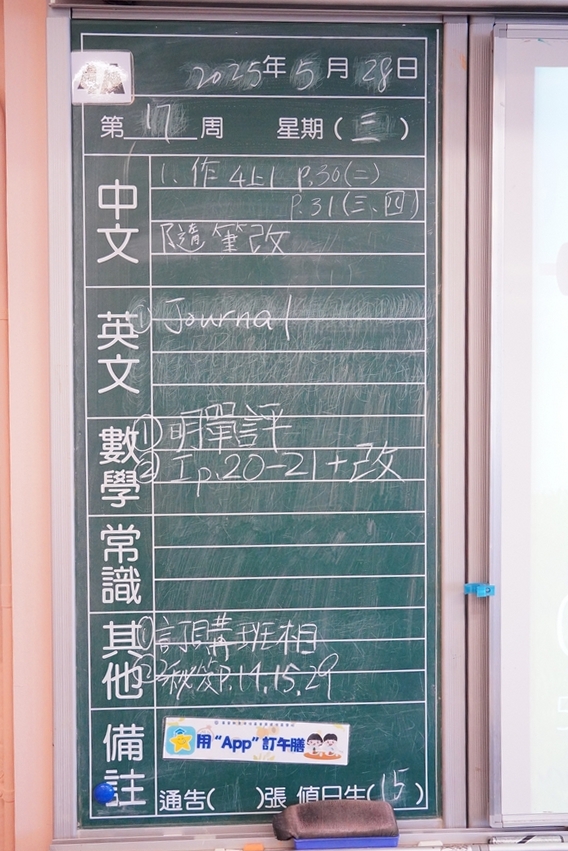 2025年5月28日
第17周 星期(三)
中文
1. 作 4上1 P.30(二)
P.31(三、四)
隨筆改
英文
① Journal
數學
① 明單評
② Ip.20-21+改
常識
其他
① 訂購班相
② P.14,15,29
備註
用“App”訂午膳
通告( )張 值日生(15)